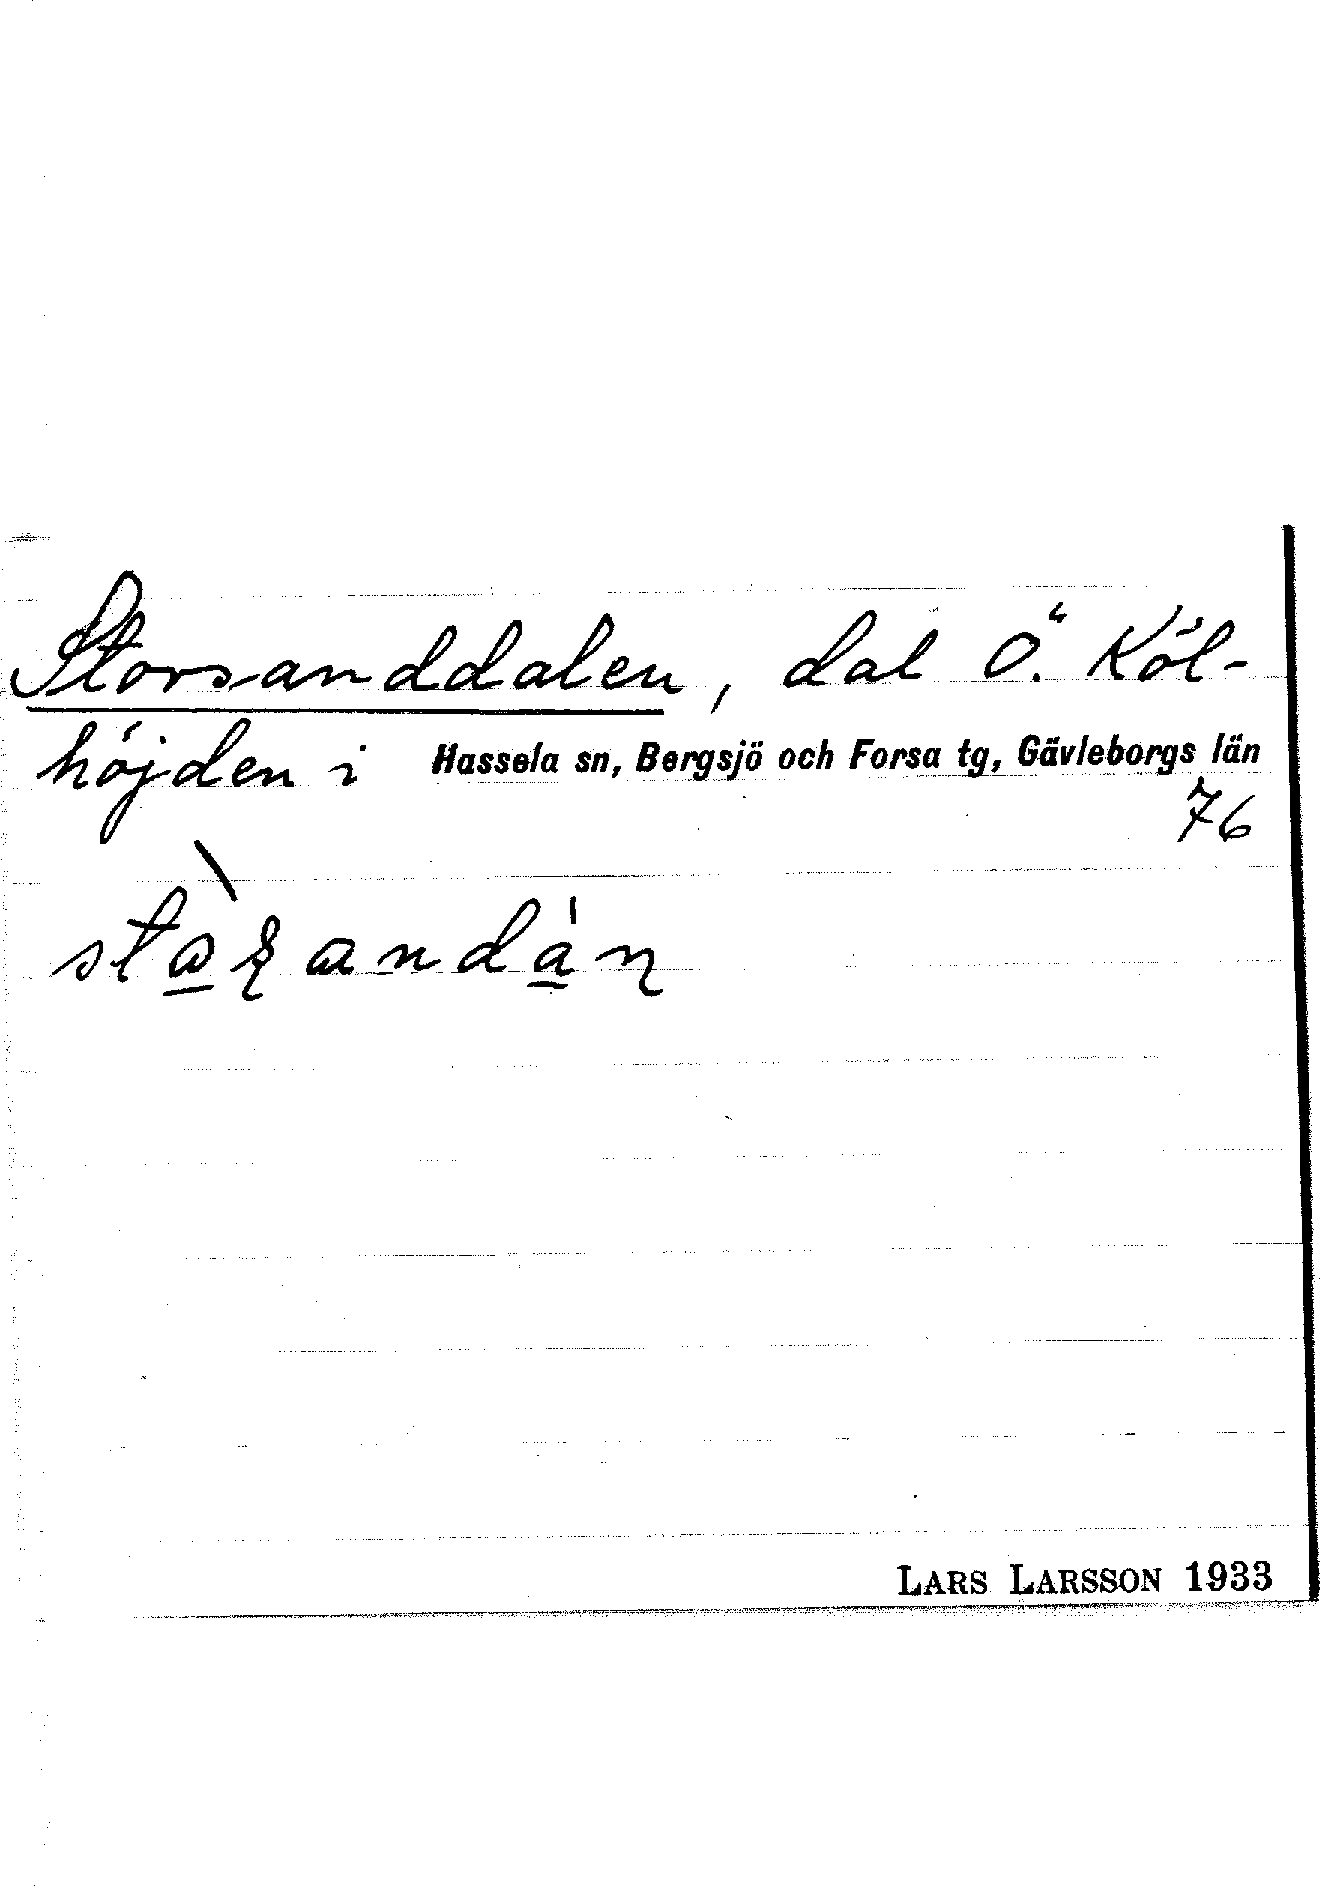 Storsanddalen, dal Ö. Köl-
höjden i Hassela sn, Bergsjö och Forsa tg, Gävleborgs län
76
LARS LARSSON 1933